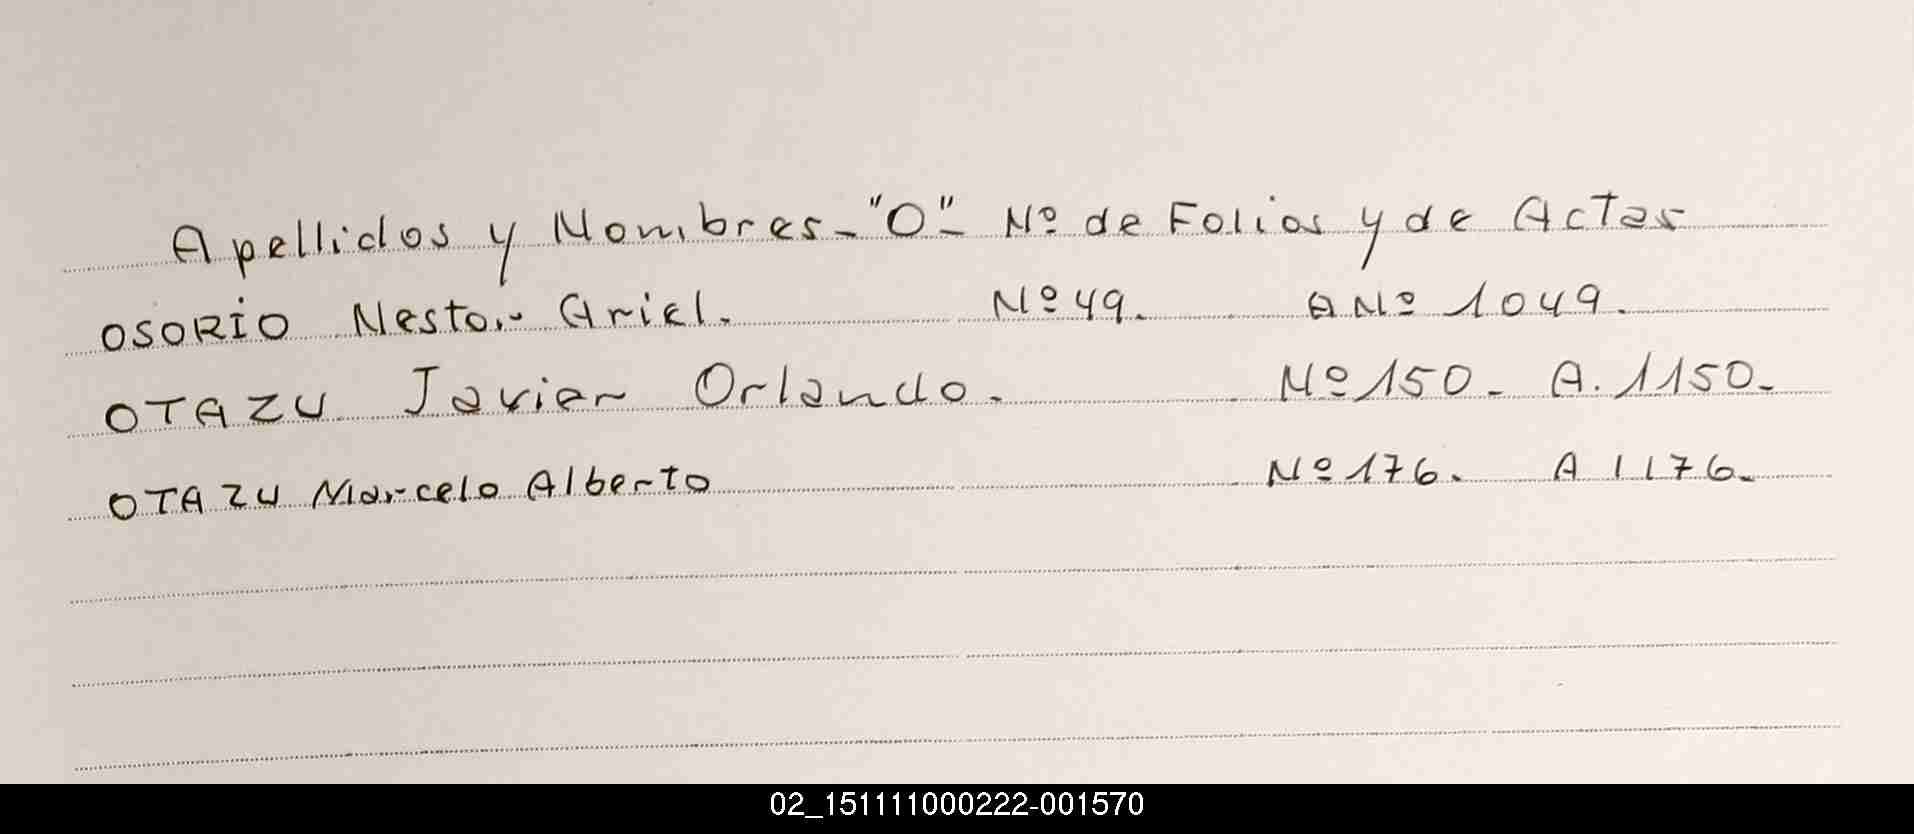 Apellidos y Nombres - "O" - Nº de Folios y de Actas
OSORIO Nestor Ariel. Nº 49. A Nº 1049.
OTAZU Javier Orlando. Nº 150. A. 1150.
OTAZU Marcelo Alberto Nº 176. A 1176.
02_151111000222-001570